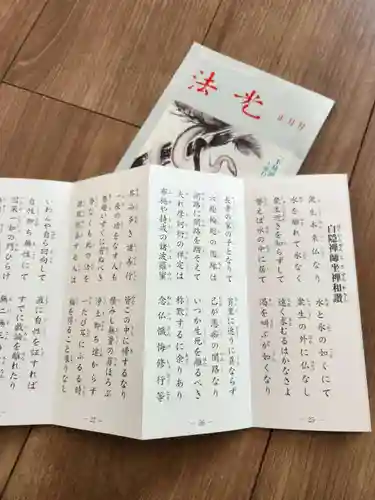 法光
正月号
白隠禅師坐禅和讃
衆生本来仏なり
水と氷の如くにて
水を離れて氷なく
衆生の外に仏なし
衆生近きを知らずして
遠く求むるはかなさよ
譬えば水の中に居て
渇を叫ぶが如くなり
-25-
長者の家の子となりて
貧里に迷うに異ならず
六趣輪廻の因縁は
己が愚痴の闇路なり
闇路に闇路を踏そえて
いつか生死を離るべき
夫れ摩訶衍の禅定は
称歎するに余りあり
布施や持戒の諸波羅蜜
念仏懺悔修行等
-26-
其品多き諸善行
皆この中に帰するなり
一座の功をなす人も
積みし無量の罪ほろぶ
悪趣いずくに有ぬべき
浄土即ち遠からず
辱なくも此の法を
一たび耳にふるる時
讃歎随喜する人は
福を得ること限りなし
-27-
いわんや自ら回向して
直に自性を証すれば
自性即ち無性にて
すでに戯論を離れたり
因果一如の門ひらけ
無二無三